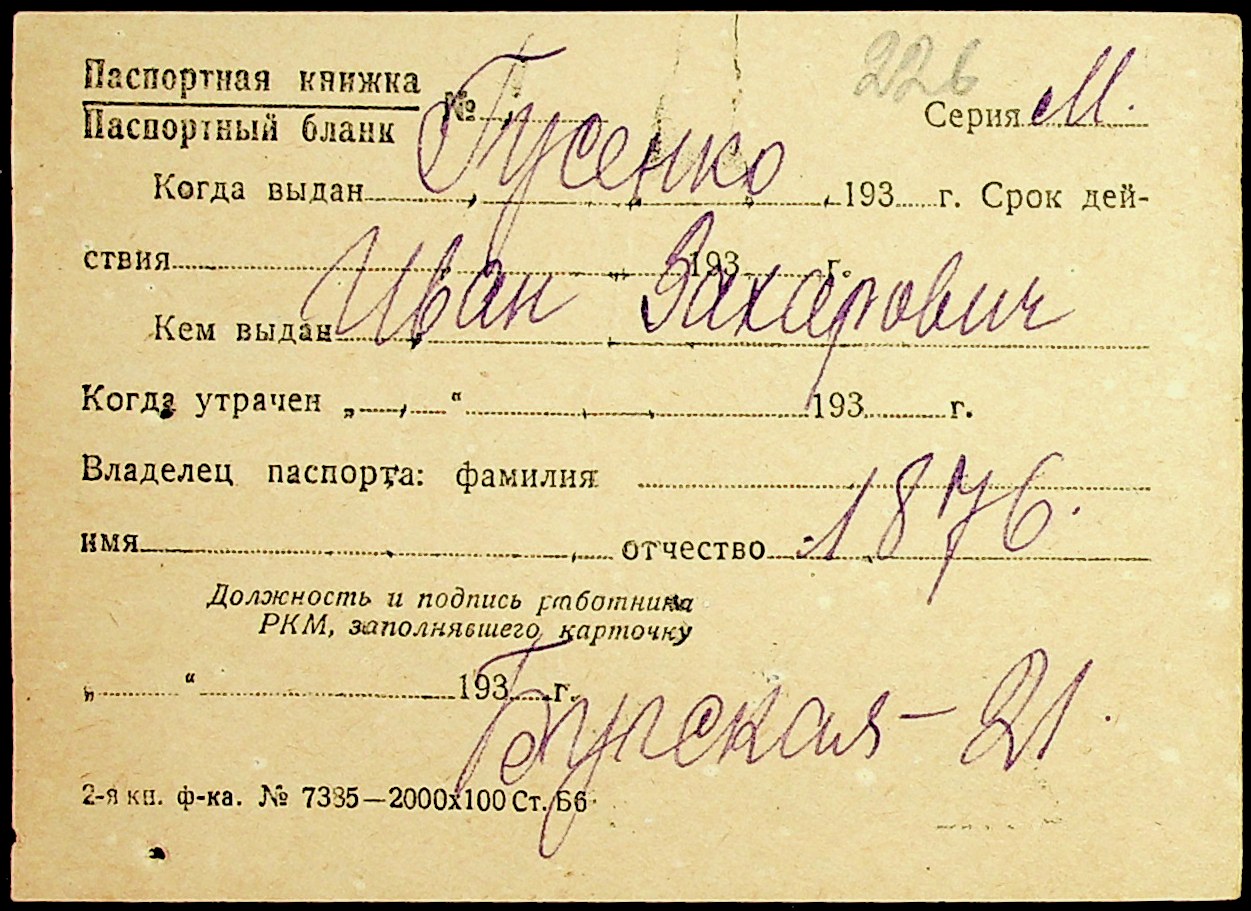 226
Паспортная книжка
Паспортный бланк № Серия М.
Гусенко
Когда выдан 193 г. Срок дей-
ствия 193 г.
Иван Захарович
Кем выдан
Когда утрачен „ “ 193 г.
Владелец паспорта: фамилия
имя отчество 1876.
Должность и подпись работника
РКМ, заполнявшего карточку
„ “ 193 г.
21.
2-я кн. ф-ка. № 7385—2000х100 Ст. Б6